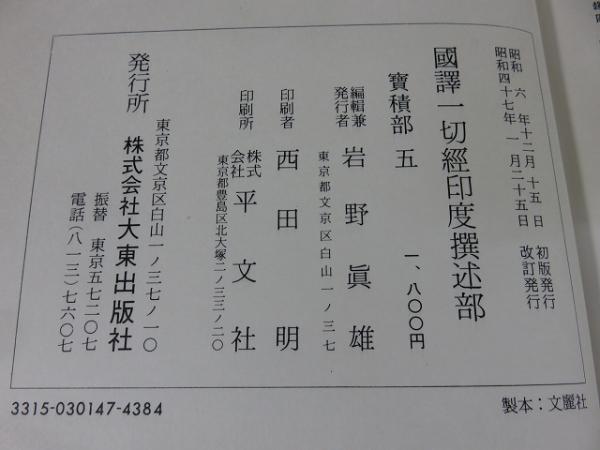 昭和 六 年十二月 十五 日 初版発行
昭和四十七年 一 月二十五日 改訂発行
國譯一切經印度撰述部
寶積部 五
一、八〇〇円
編輯兼
発行者
岩野眞雄
東京都文京区白山一ノ三七
印刷者 西田明
印刷所 株式会社 平文社
東京都豊島区北大塚二ノ三三ノ二〇
発行所 株式会社大東出版社
東京都文京区白山一ノ三七ノ一〇
振替 東京五七二〇七
電話(八一三)七六〇七
3315-030147-4384
製本:文麗社